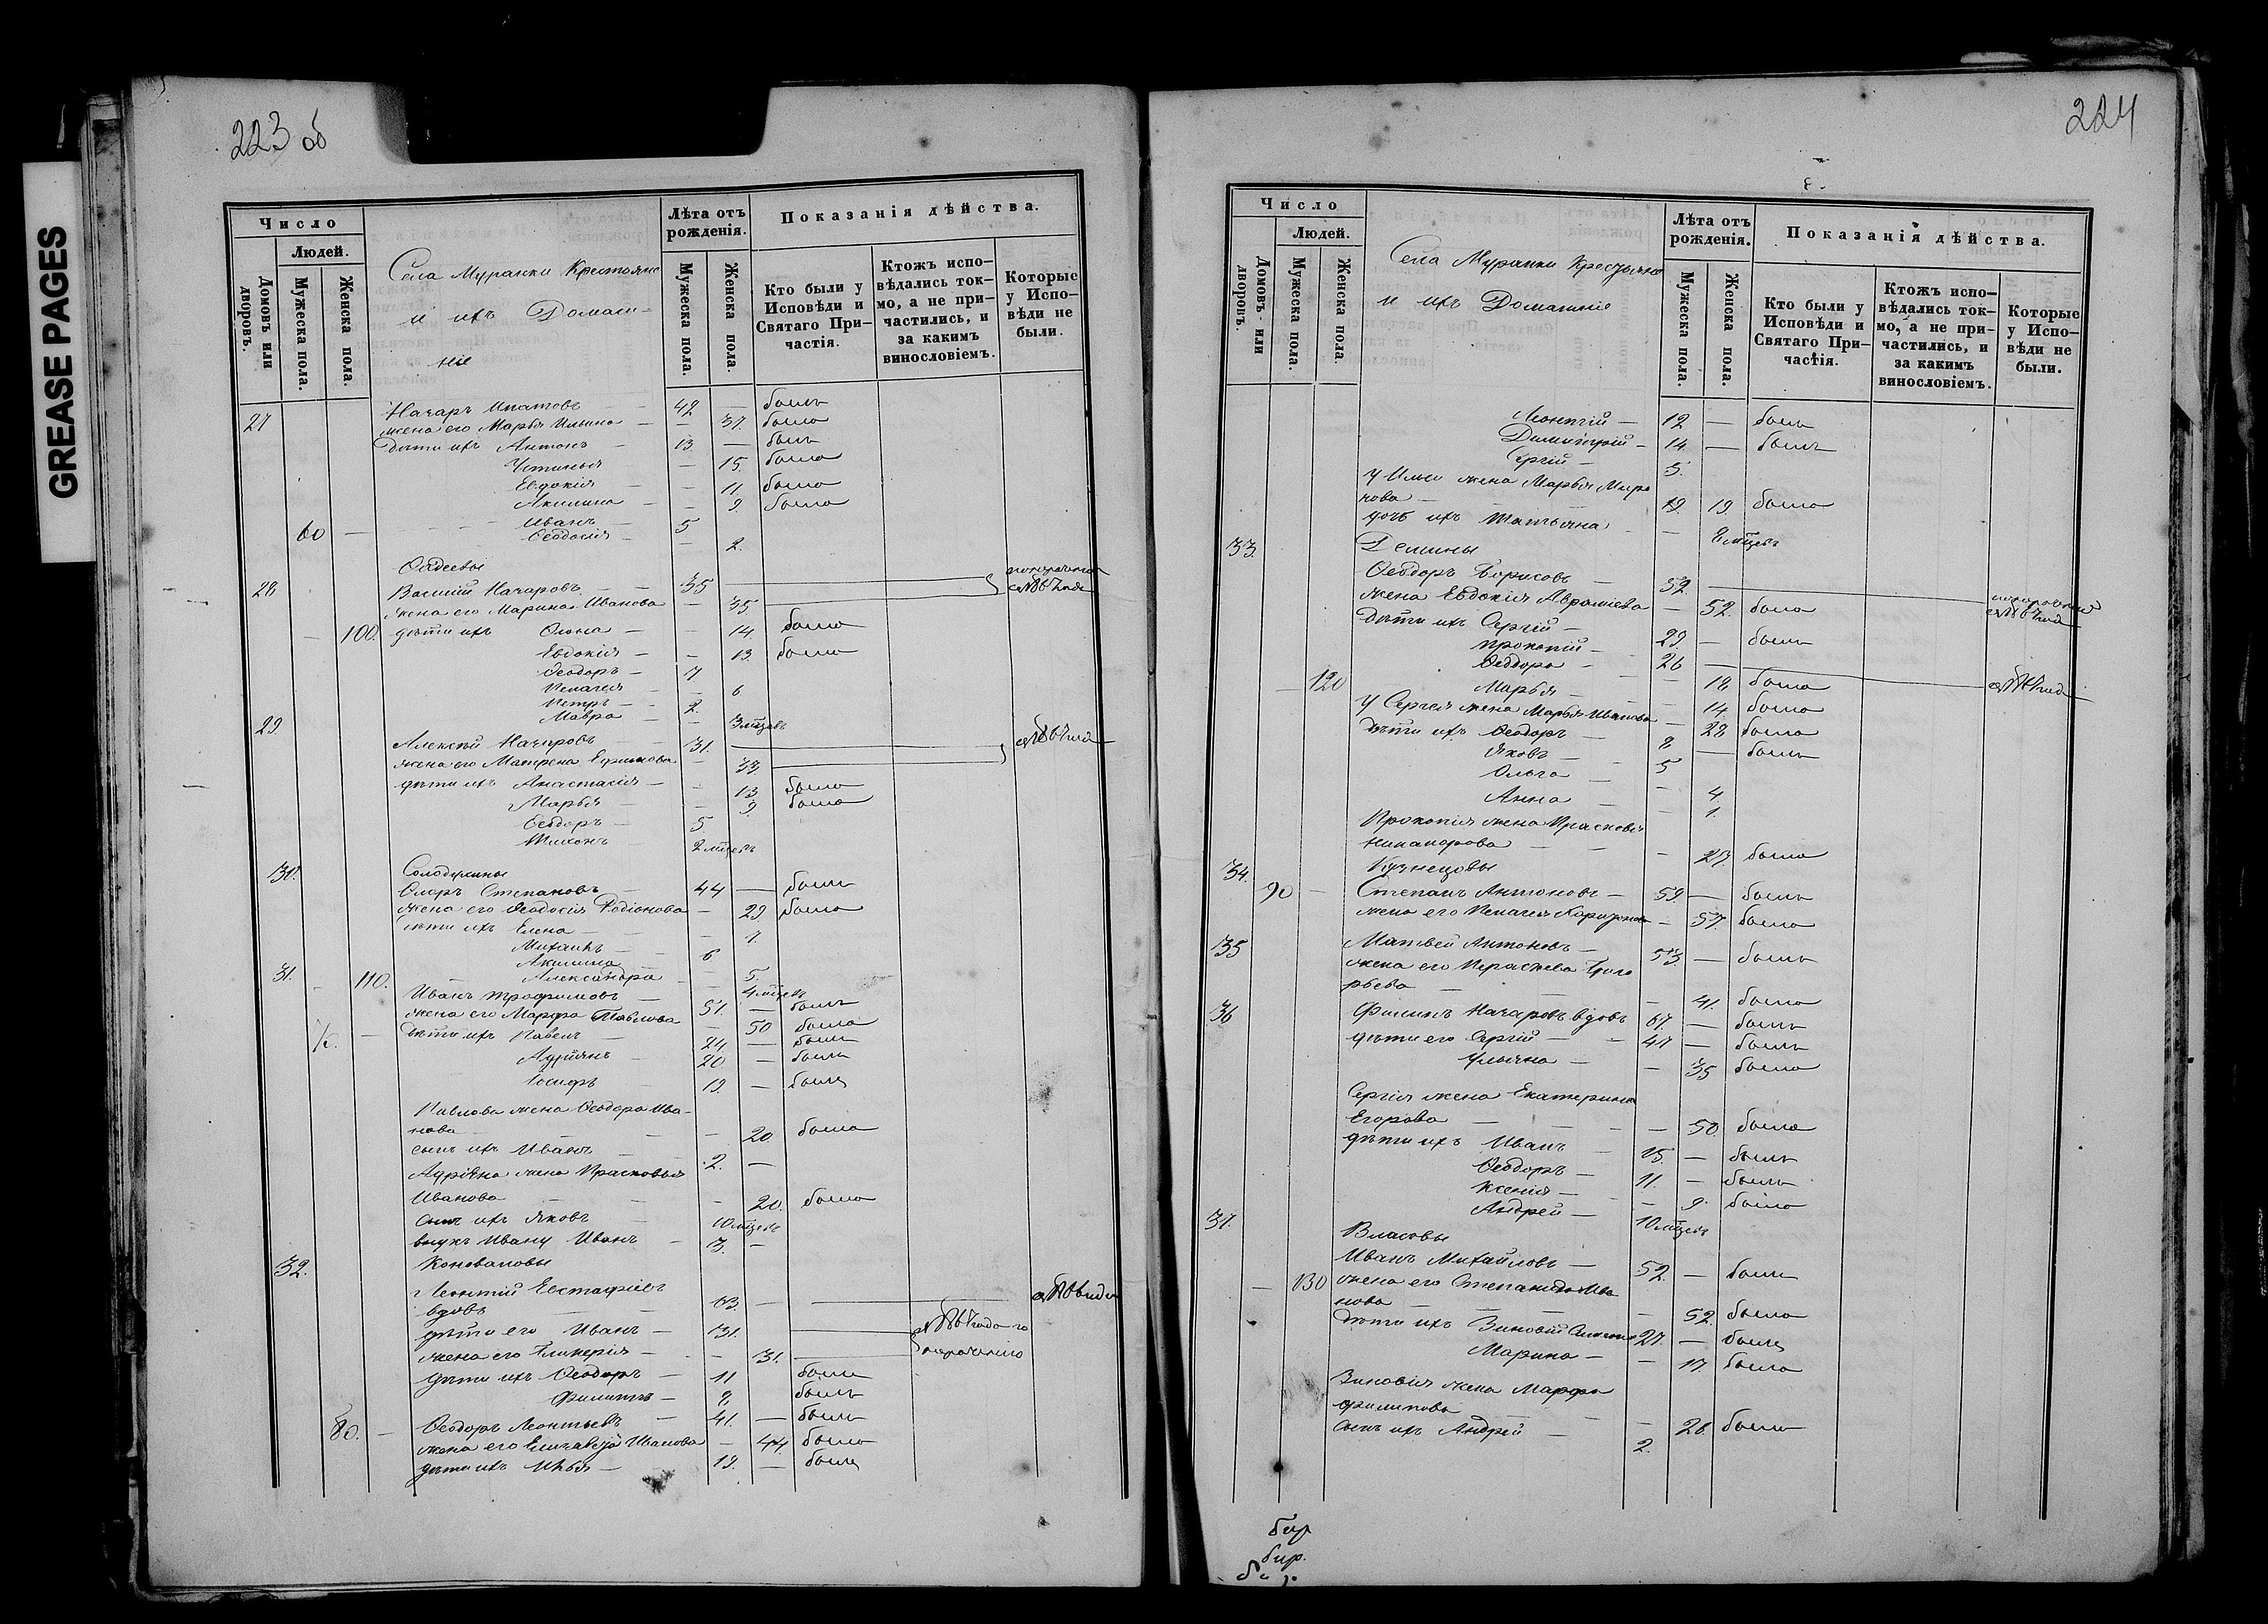 GREASE PAGES
223 об
Число
Людей.
Домовъ или дворовъ.
Мужеска пола.
Женска пола.
Села Муранки Крестьяне
и ихъ Домаш-
ніе
Лѣта отъ рожденія.
Мужеска пола.
Женска пола.
Показанія дѣйства.
Кто были у Исповѣди и Святаго При-частія.
Ктожъ испо-вѣдались ток-мо, а не при-частились, и за какимъ винословіемъ.
Которые у Испо-вѣди не были.
27 Назаръ Ипатовъ 42 — былъ
жена его Марья Ильина — 37. была
Дѣти ихъ Антонъ 13. — былъ
Устинья — 15. была
Евдокія — 11 была
Акилина — 9. была
60 — Иванъ 5
Ѳеодосія — 2.
Фадеевы
28 Василій Назаровъ 35
жена его Марина Иванова — 35
— 100. дѣти ихъ Олена — 14. была
Евдокія — 13. была
Ѳеодоръ 7
Пелагея — 6
Петръ 2.
Мавра — 3 мѣсяцовъ
29. Алексѣй Назаровъ 31.
жена его Матрена Ефимова — 33
дѣти ихъ Анастасія — 13 была
Марья — 9. была
Ѳеодоръ 5
Тихонъ 2 мѣсяцевъ
30. Солодухины
Флоръ Степановъ 44 — былъ
жена его Ѳеодосія Родіонова — 29. была
дѣти ихъ Елена — 7.
Михаилъ 6
Акилина — 5.
31. 110. Александра 4 мѣсяцевъ
Иванъ Трофимовъ 51. — былъ
жена его Марфа Павлова — 50 была
70. — дѣти ихъ Павелъ 24. — былъ
Адріянъ 20. — былъ
Іосифъ 19. — былъ
Павлова жена Ѳеодора Ива-
нова — 20 была
сынъ ихъ Иванъ 2. —
Адріяна жена Прасковья
Иванова — 20. была
сынъ ихъ Яковъ 10 мѣсяцевъ
внукъ Ивану Иванъ 3. —
32. Коноваловы
Леонтій Евстафіевъ
вдовъ 63. —
дѣти его Иванъ 31.
жена его Гликерія — 31.
дѣти ихъ Ѳеодоръ 11 былъ
Филиппъ 8 былъ
80. — Ѳеодоръ Леонтьевъ 41. — былъ
жена его Елизавета Иванова — 44. была
дѣти ихъ Илья 19. — былъ
224
Число
Людей.
Домовъ или дворовъ.
Мужеска пола.
Женска пола.
Села Муранки Крестьяне
и ихъ Домашніе
Лѣта отъ рожденія.
Мужеска пола.
Женска пола.
Показанія дѣйства.
Кто были у Исповѣди и Святаго При-частія.
Ктожъ испо-вѣдались ток-мо, а не при-частились, и за какимъ винословіемъ.
Которые у Испо-вѣди не были.
Леонтій — 12 — былъ
Димитрій — 14. — былъ
Сергій — 5.
у Ильи жена Марья Миро
нова — 19. была
дочь ихъ Татьяна — 8 мѣсяцевъ
33. Демины
Ѳеодоръ Борисовъ 52
жена Евдокія Аврамiева — 52. была
Дѣти ихъ Сергій — 29. — былъ
Прокопій — 26 —
Ѳеодора — 18 была
— 120 Марья — 14. была
У Сергея жена Марья Иванова — 28 была
дѣти ихъ Ѳеодоръ 8 — былъ
Яковъ 5
Ольга — 4.
Анна — 1.
Прокопія жена Прасковья
Никанорова — 27. была
34. Кузнецовы
90 — Степанъ Антоновъ — 59. — былъ
жена его Пелагея Харитонова — 57. была
35 Матвей Антоновъ — 53. — былъ
жена его Прасковья Григо
рьева — 41. была
36 Филипъ Назаровъ вдовъ 67. — былъ
дѣти его Сергій — 47 — былъ
Ульяна — 35 была
Сергія жена Екатерина
Егорова — 50. была
дѣти ихъ Иванъ 15. — былъ
Ѳеодоръ — 11. — былъ
Ксенія — 9. была
Андрей — 10 мѣсяцевъ
37. Власовы
Иванъ Михайловъ — 52. — былъ
— 130 жена его Степанида Ива
нова — 52. была
Дѣти ихъ Зиновій 27. — былъ
Марина — 17. была
Зиновія жена Марфа
Филипова — 26. была
сынъ ихъ Андрей 2.